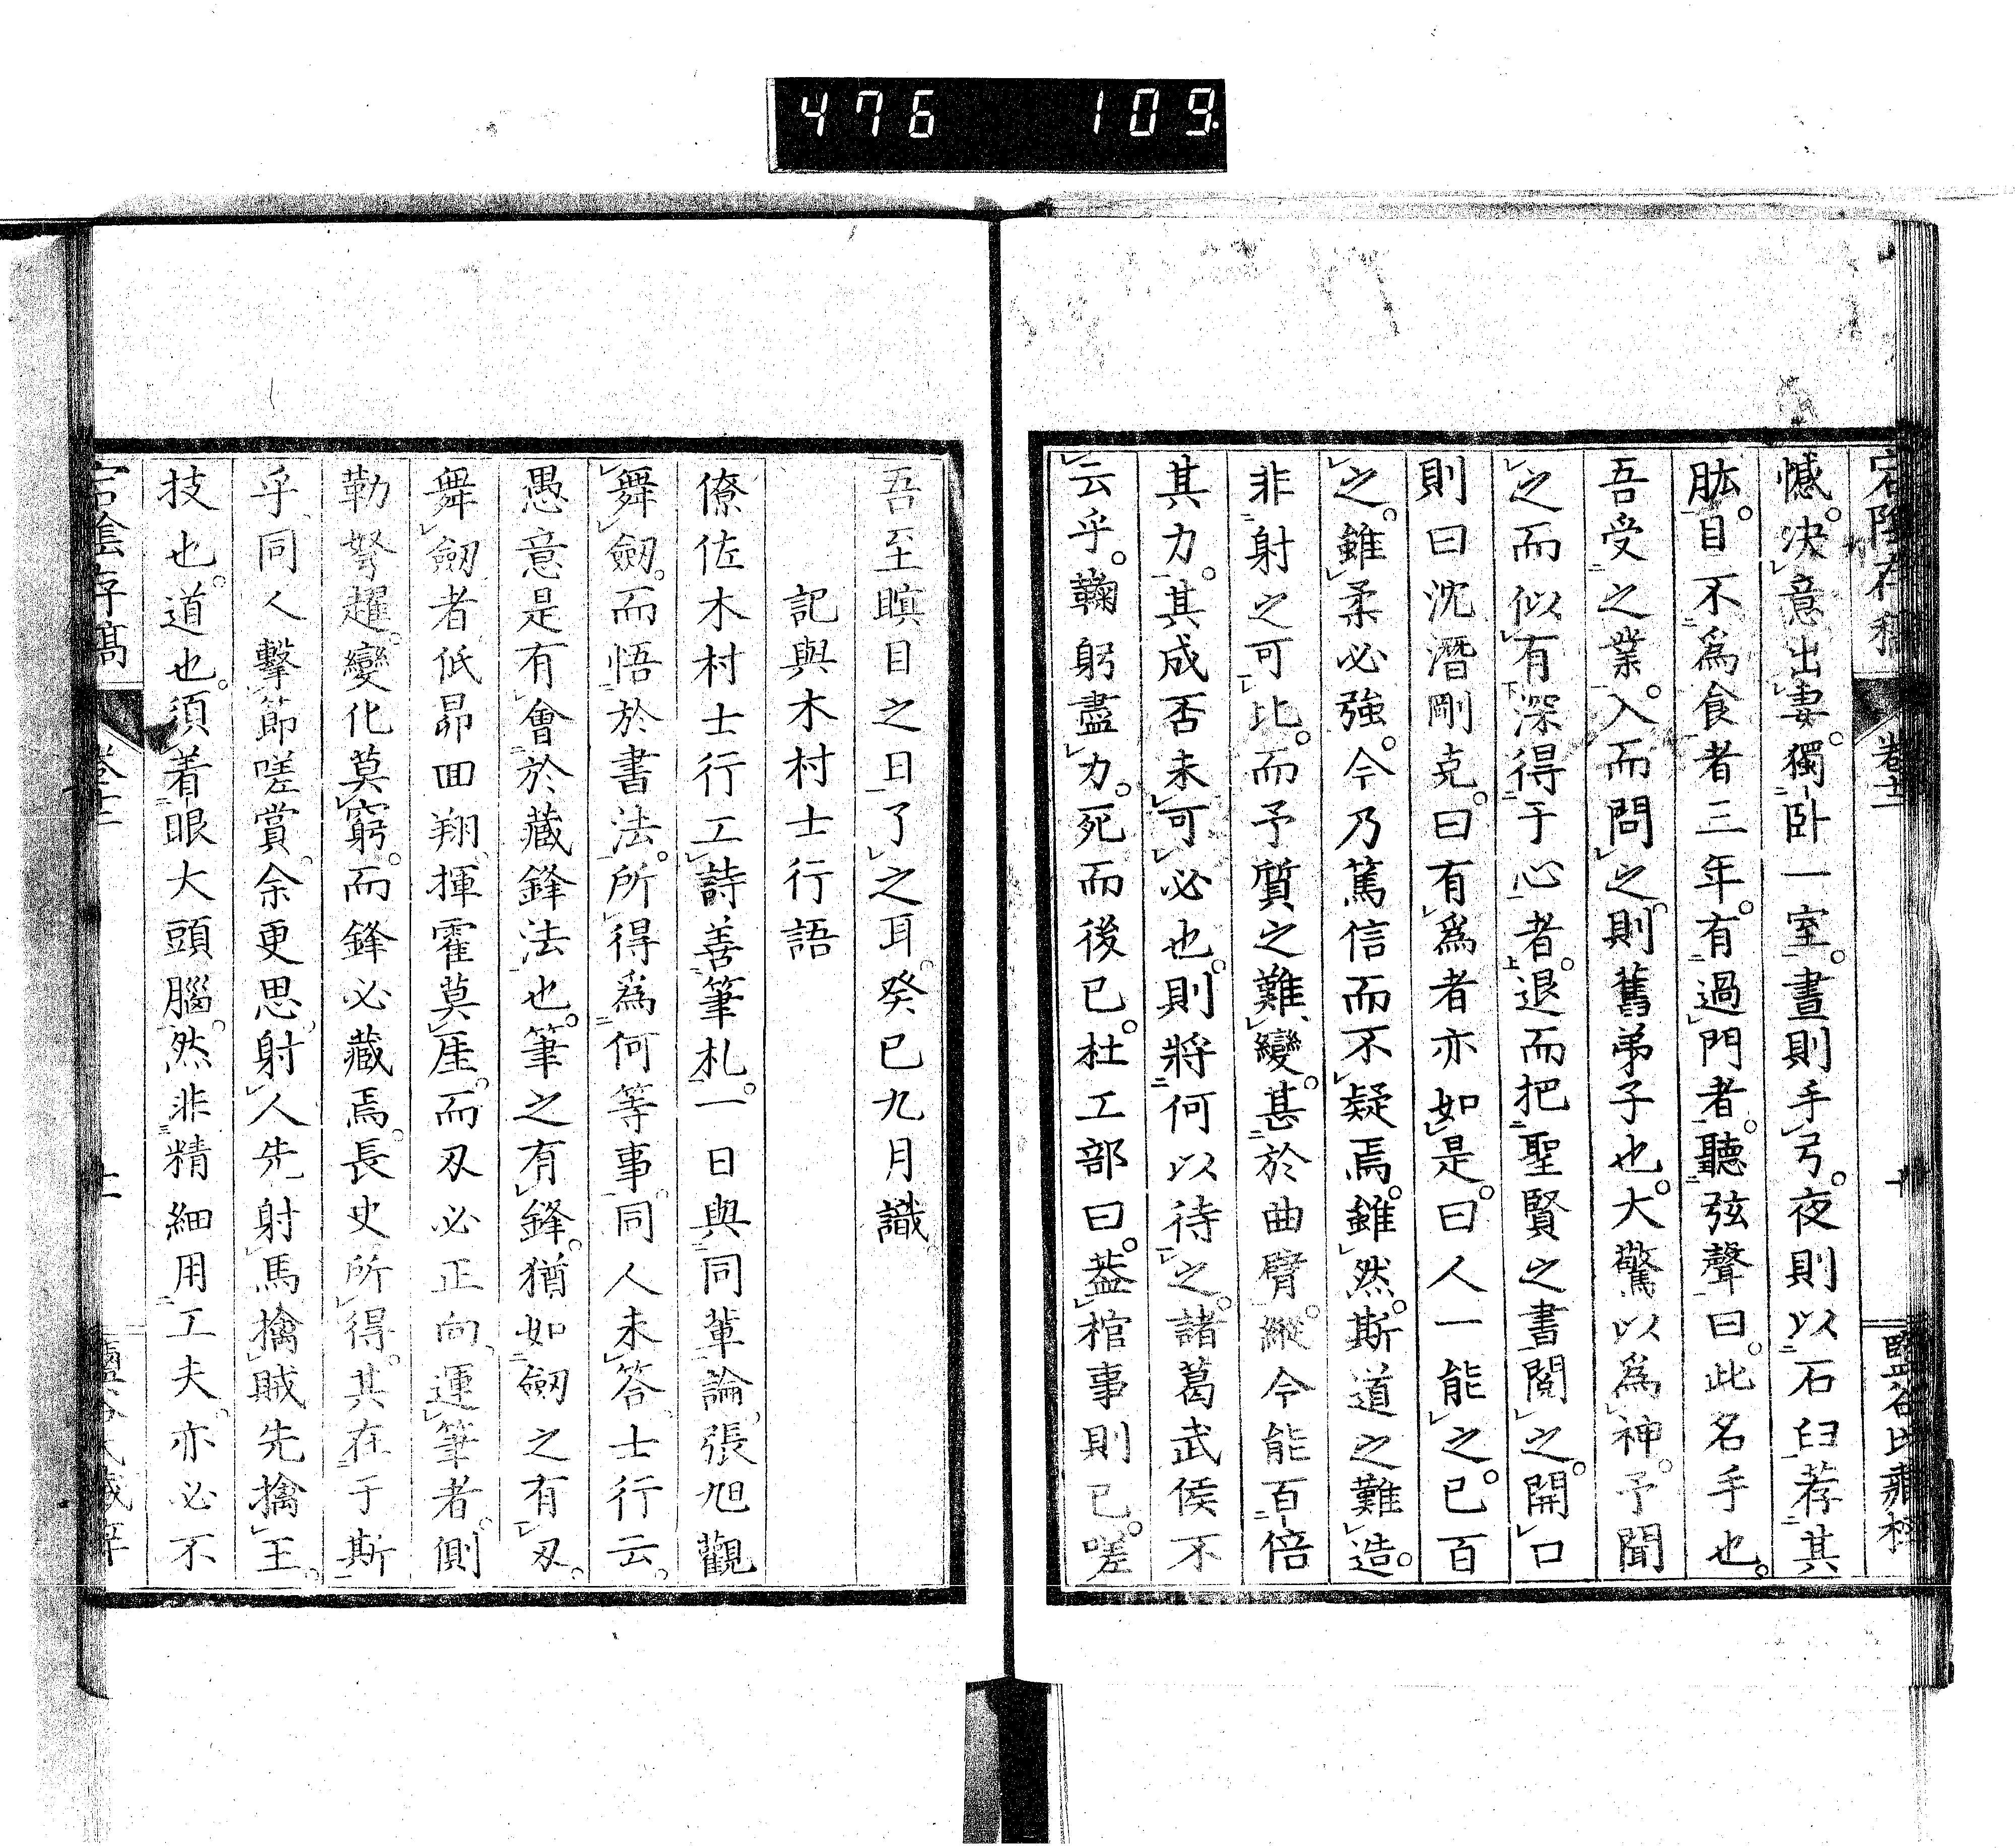 476 109
卷十二
十
憾。決意出妻。獨臥一室。晝則手弓。夜則以石臼荐其
肱。目不爲食者三年。有過門者。聽弦聲曰。此名手也。
吾受之業。入而問之。則舊弟子也。大驚以爲神。予聞
之而似有深得于心者。退而把聖賢之書閱之。開口
則曰沈潛剛克。曰有爲者亦如是。曰人一能之。已百
之。雖柔必強。今乃篤信而不疑焉。雖然。斯道之難造。
非射之可比。而予質之難變。甚於曲臂。縱令能百倍
其力。其成否未可必也。則將何以待之。諸葛武侯不
云乎。鞠躬盡力。死而後已。杜工部曰。蓋棺事則已。嗟
吾至瞑目之日了之耳。癸巳九月識
記與木村士行語
僚佐木村士行工詩善筆札。一日與同輩論張旭觀
舞劒。而悟於書法。所得爲何等事。同人未答。士行云。
愚意是有會於藏鋒法也。筆之有鋒。猶如劒之有刃。
舞劒者低昂回翔、揮霍莫厓。而刃必正向、運筆者。側
勒努趯。變化莫窮。而鋒必藏焉。長史所得。其在于斯
乎、同人擊節嗟賞。余更思。射人先射馬擒賊先擒王。
技也。道也。須着眼大頭腦。然非精細用工夫。亦必不
宕陰存稿